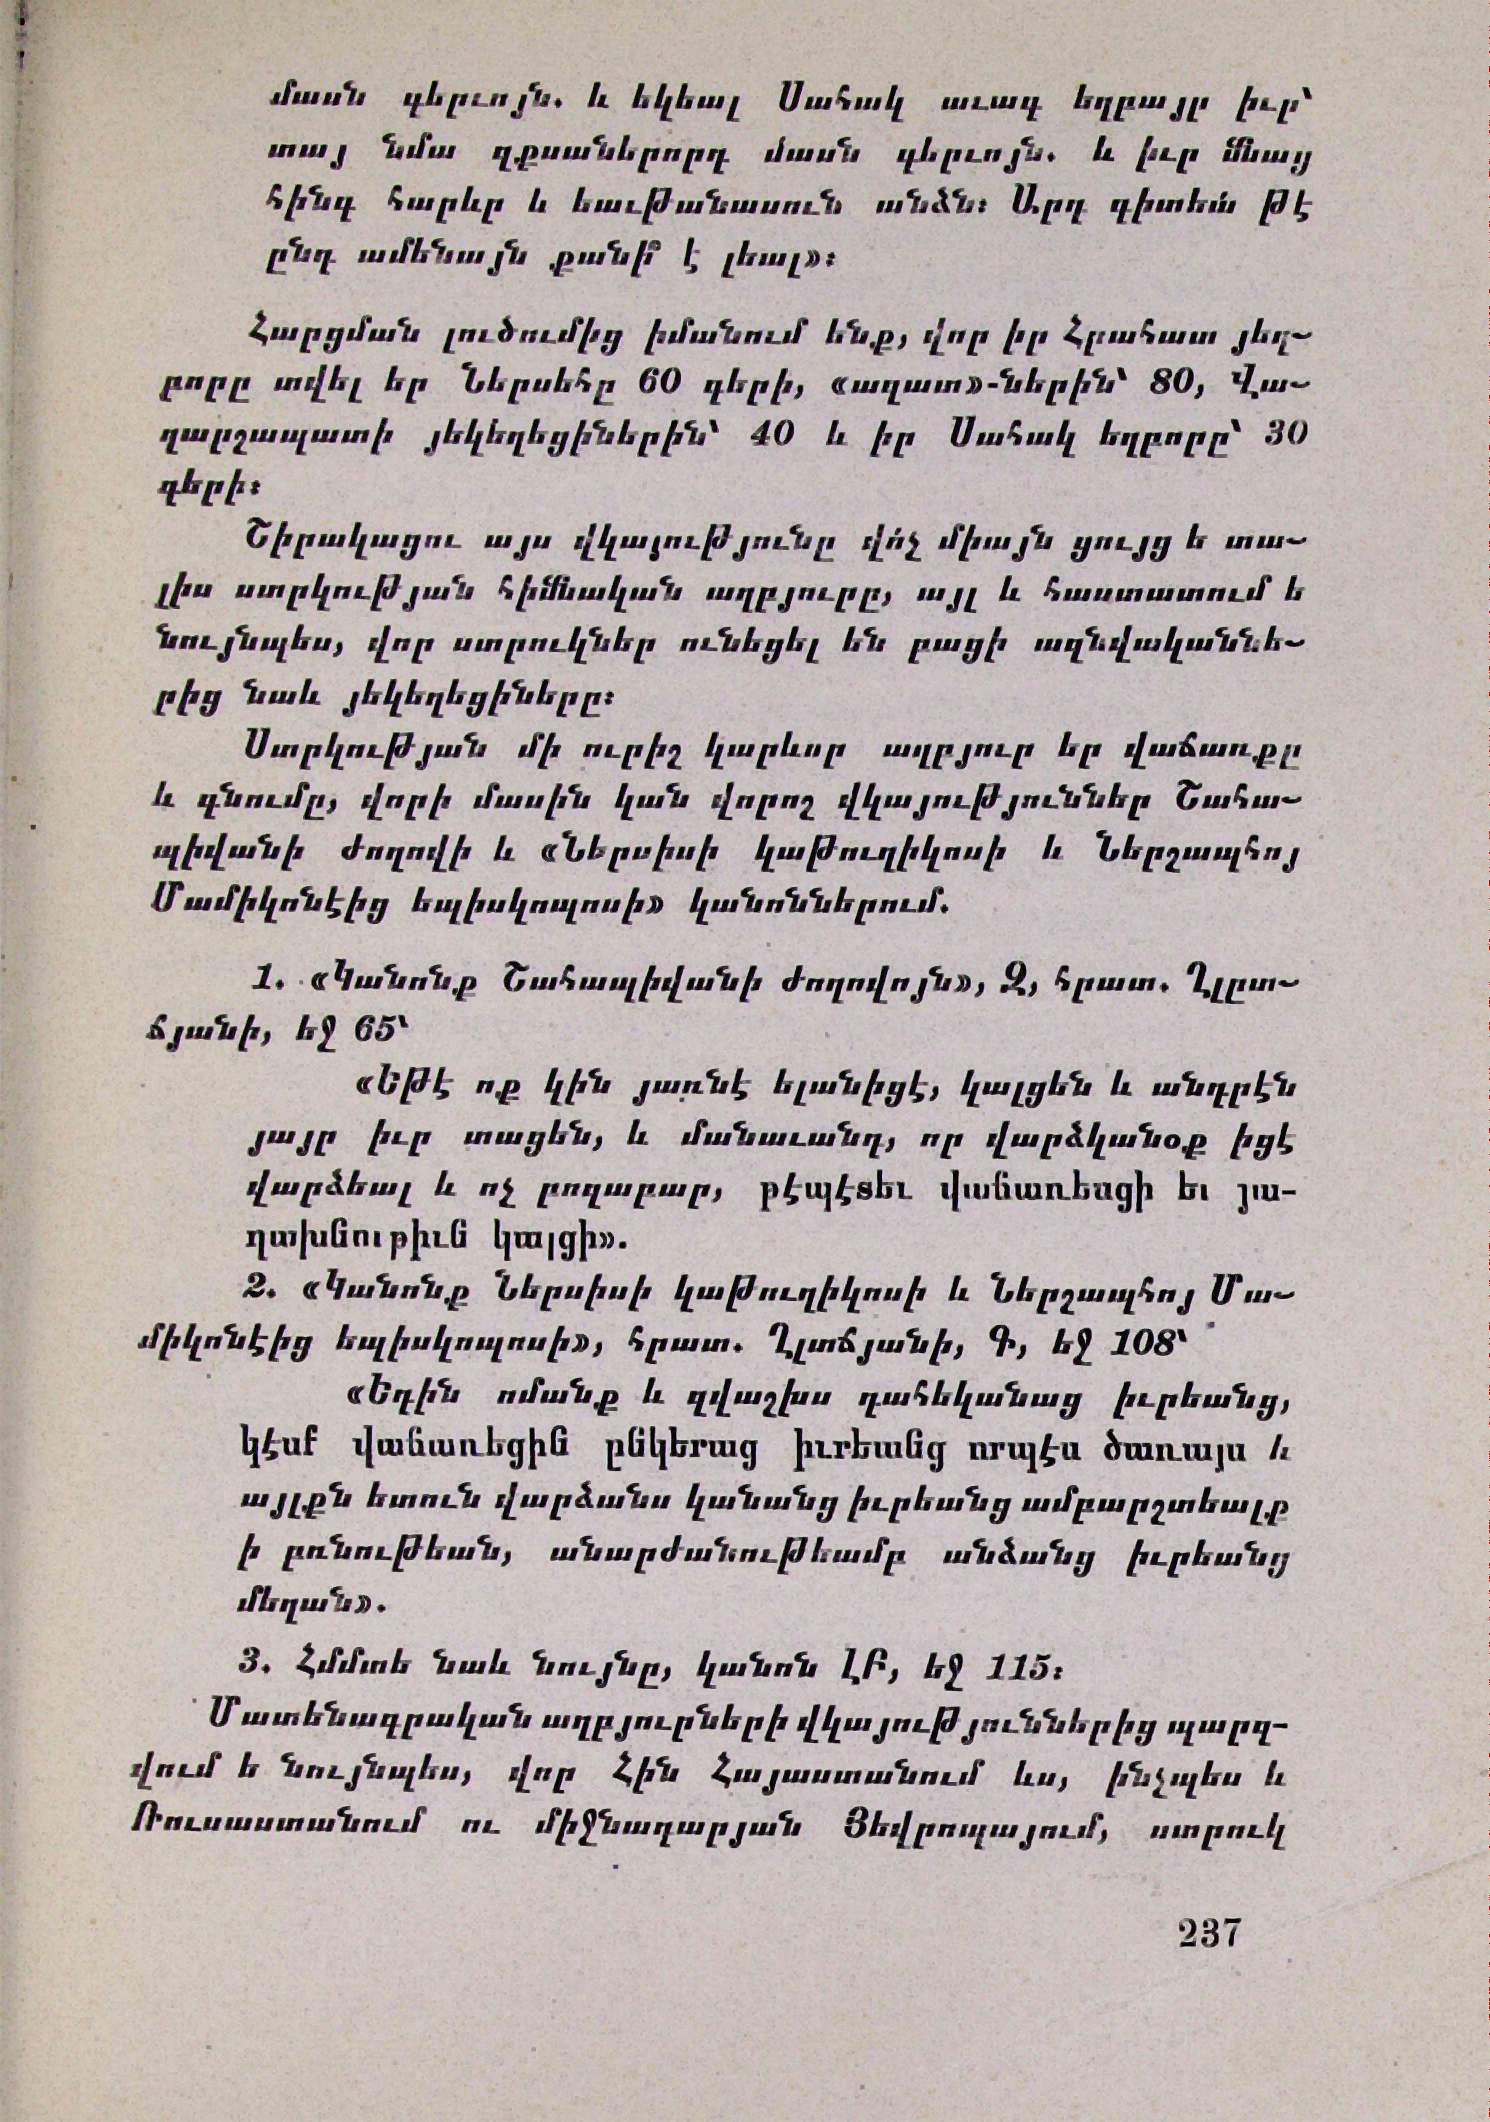 մասն գերւոյն. և եկեալ Սահակ աւագ եղբայր իւր՝
տայ նմա զքսաներորդ մասն գերւոյն. և իւր մնաց
հինգ հարևր և եաւթանասուն անձն։ Արդ գիտեա՛ թէ
ընդ ամենայն քանի՞ է լեալ»։
Հարցման լուծումից իմանում ենք, վոր իր Հրահատ յեղ-
բորը տվել եր Ներսեհը 60 գերի, «ազատ»-ներին՝ 80, Վա-
ղարշապատի յեկեղեցիներին՝ 40 և իր Սահակ եղբորը՝ 30
գերի։
Շիրակացու այս վկայությունը վո՛չ միայն ցույց ե տա-
լիս ստրկության հիմնական աղբյուրը, այլ և հաստատում ե
նույնպես, վոր ստրուկներ ունեցել են բացի ազնվականնե-
րից նաև յեկեղեցիները։
Ստրկության մի ուրիշ կարևոր աղբյուր եր վաճառքը
և գնումը, վորի մասին կան վորոշ վկայություններ Շահա-
պիվանի ժողովի և «Ներսիսի կաթուղիկոսի և Ներշապհոյ
Մամիկոնէից եպիսկոպոսի» կանոններում.
1. «Կանոնք Շահապիվանի ժողովոյն», Զ, հրատ. Ղլըտ-
ճյանի, եջ 65՝
«Եթէ ոք կին յառնէ ելանիցէ, կալցեն և անդրէն
յայր իւր տացեն, և մանաւանդ, որ վարձկանօք իցէ
վարձեալ և ոչ բողաբար, թէպէտեւ վաճառեսցի եւ յա-
ղախնութիւն կայցի».
2. «Կանոնք Ներսիսի կաթուղիկոսի և Ներշապհոյ Մա-
միկոնէից եպիսկոպոսի», հրատ. Ղլտճյանի, Գ, եջ 108՝
«Եդին ոմանք և զվաշխս դահեկանաց իւրեանց,
կէսք վաճառեցին ընկերաց իւրեանց որպէս ծառայս և
այլքն ետուն վարձանս կանանց իւրեանց ամբարշտեալք
ի բռնութեան, անարժանութեամբ անձանց իւրեանց
մեղան».
3. Հմմտե նաև նույնը, կանոն ԼԲ, եջ 115։
Մատենագրական աղբյուրների վկայություններից պարզ-
վում ե նույնպես, վոր Հին Հայաստանում ևս, ինչպես և
Ռուսաստանում ու միջնադարյան Յեվրոպայում, ստրուկ
237